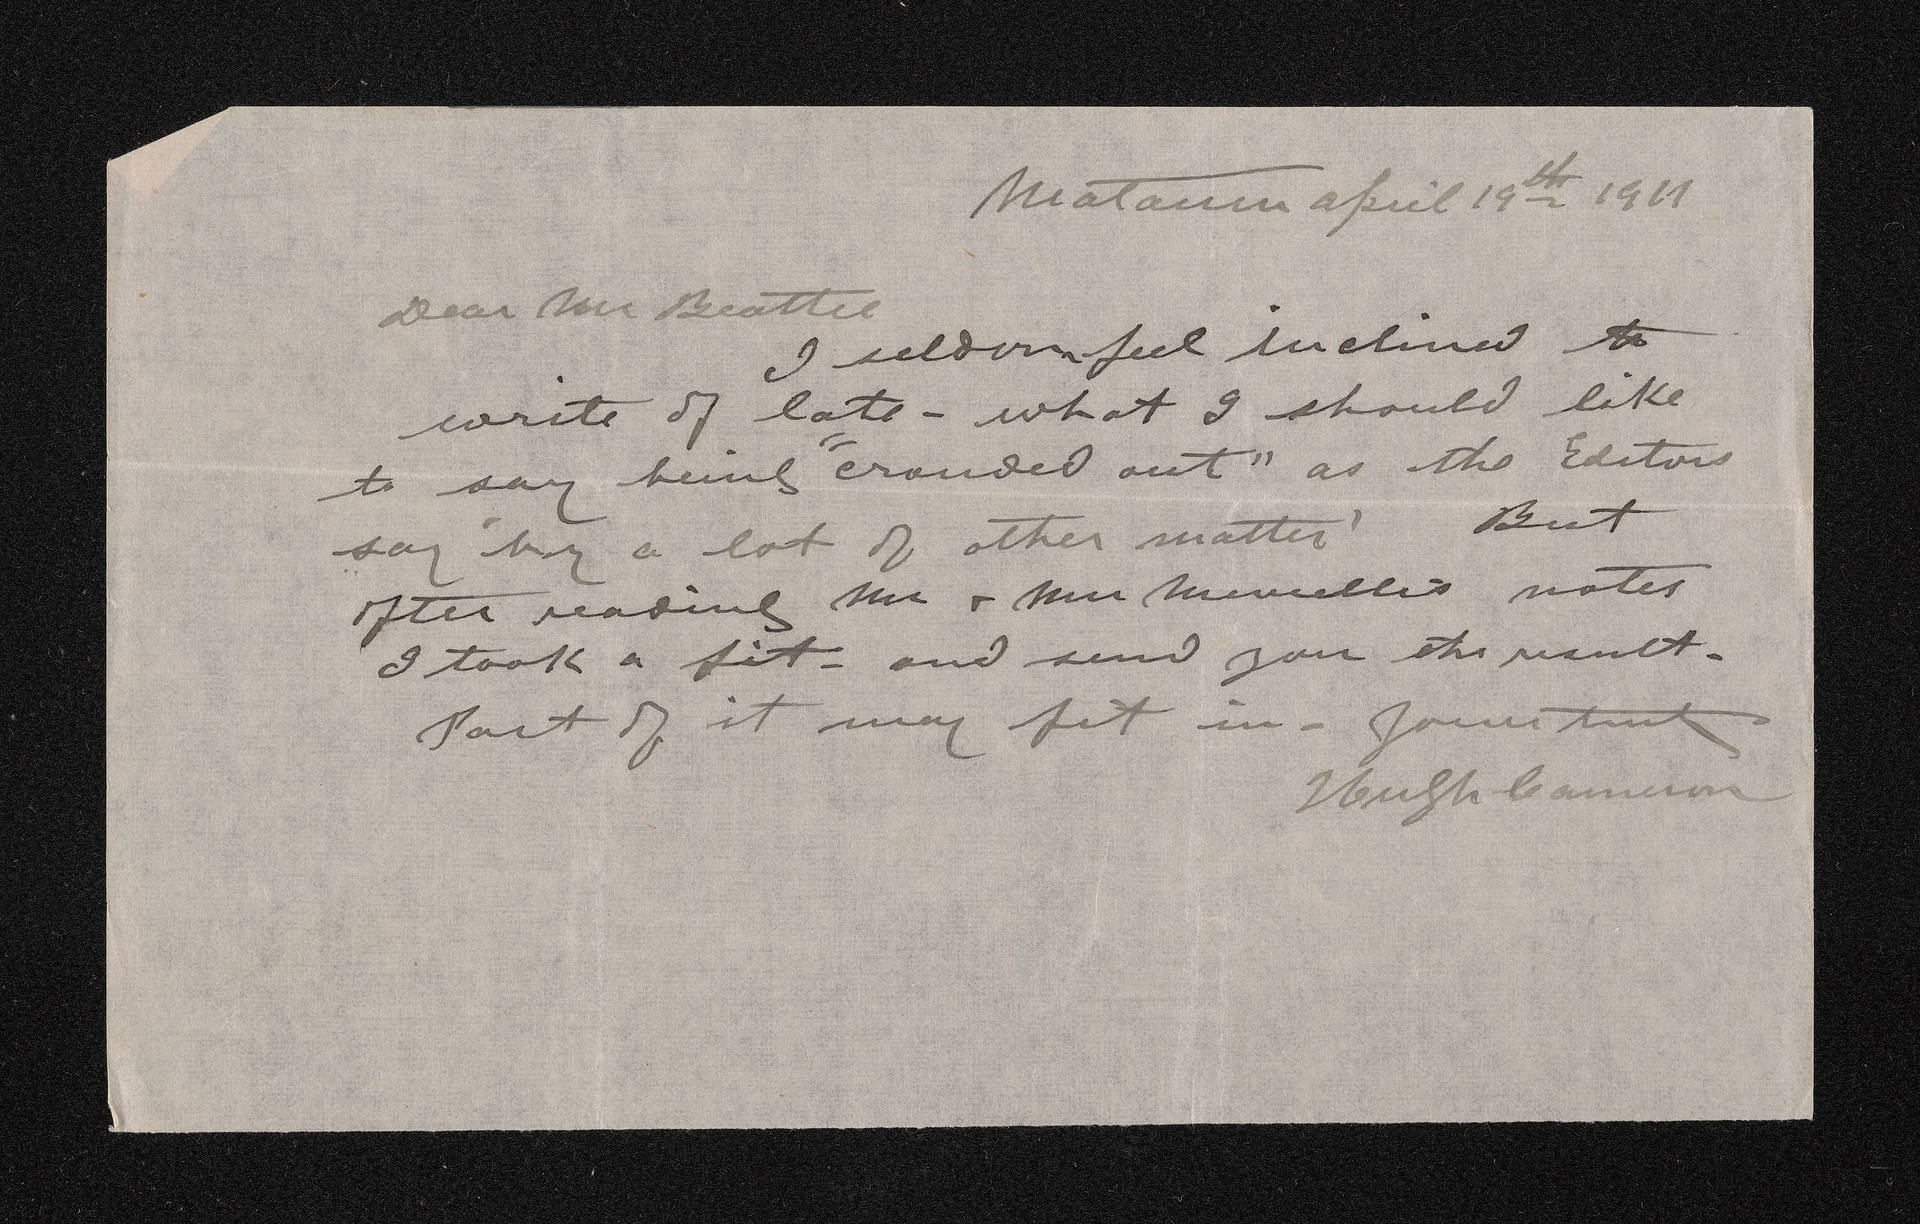 Mataura April 19th 1911
Dear Mr Beattie
I seldom feel inclined to
write of late - what I should like
to say being "crouded out" as the Editors
say 'by a lot of other matter' But
after reading Mr & Mrs notes
I took a fit - and send you the result -
Part of it may fit in - Yours truly
Hugh Cameron